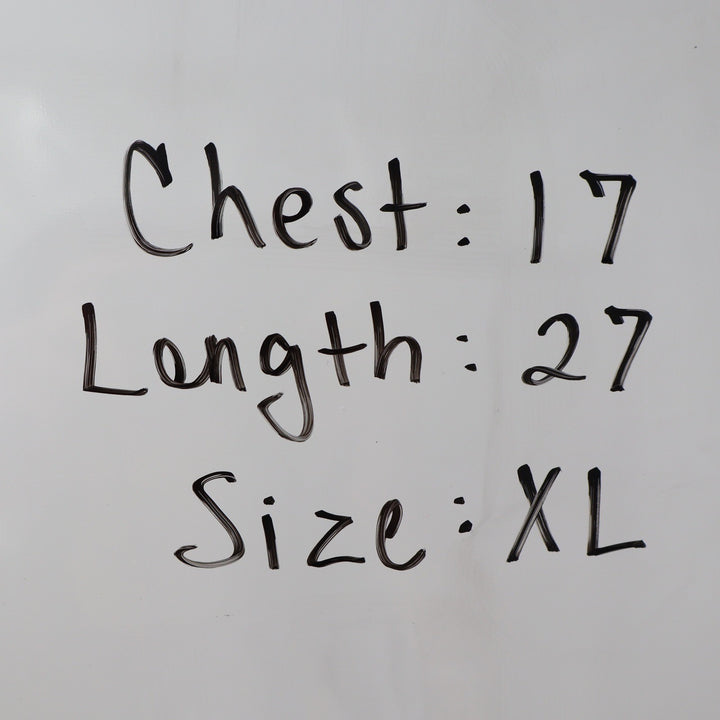 Chest: 17
Length: 27
Size: XL